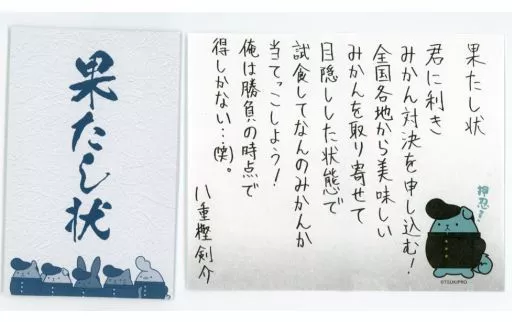 果たし状
果たし状
君に利き
みかん対決を申し込む!
全国各地から美味しい
みかんを取り寄せて
目隠しした状態で
試食してなんのみかんか
当てっこしよう!
俺は勝負の時点で
得しかない…(笑)。
八重樫剣介
押忍!
©TSUKIPRO